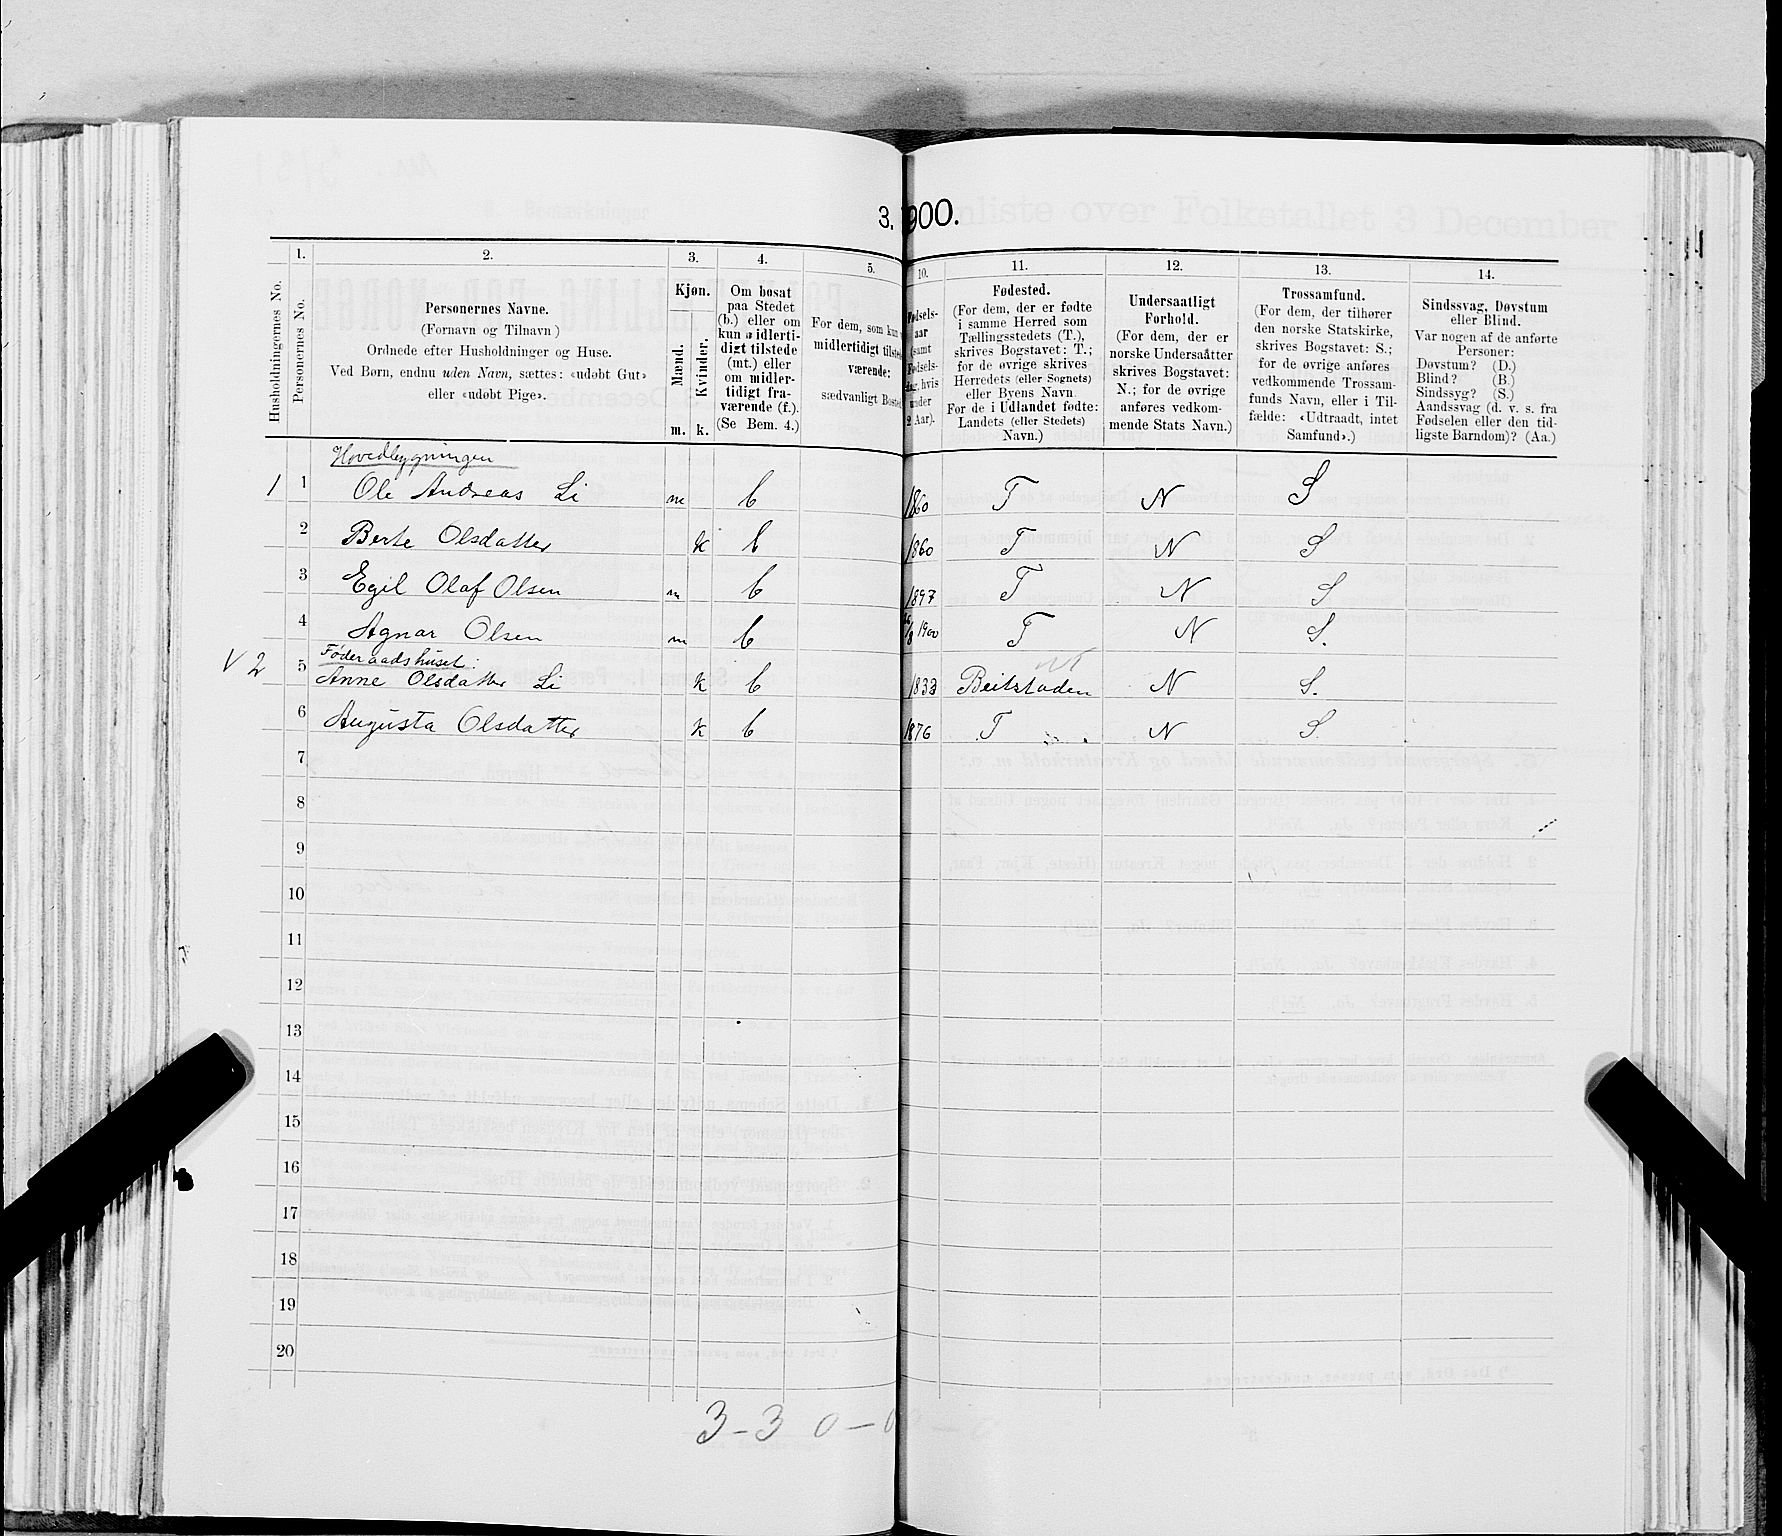 3. 900.
1. 2. 3. 4. 5. 10. 11. 12. 13. 14.
Husholdningernes No.
Personernes No.
Personernes Navne.
(Fornavn og Tilnavn)
Ordnede efter Husholdninger og Huse.
Ved Børn, endnu uden Navn, sættes: «udøbt Gut»
eller «udøbt Pige».
Kjøn.
Mænd.
Kvinder.
m. k.
Om bosat
paa Stedet
(b.) eller om
kun midlerti-
digt tilstede
(mt.) eller
om midler-
tidigt fra-
værende (f.).
(Se Bem. 4.)
For dem, som kun
midlertidigt tilstede-
værende:
sædvanligt Bosted
Fødsels-
aar
(samt
Fødsels-
dag, hvis
under
2 Aar).
Fødested.
(For dem, der er fødte
i samme Herred som
Tællingsstedets (T.),
skrives Bogstavet: T.;
for de øvrige skrives
Herredets (eller Sognets)
eller Byens Navn.
For de i Udlandet fødte:
Landets (eller Stedets)
Navn.)
Undersaatligt
Forhold.
(For dem, der er
norske Undersaatter
skrives Bogstavet:
N.; for de øvrige
anføres vedkom-
mende Stats Navn.)
Trossamfund.
(For dem, der tilhører
den norske Statskirke,
skrives Bogstavet: S.;
for de øvrige anføres
vedkommende Trossam-
funds Navn, eller i Til-
fælde: «Udtraadt, intet
Samfund».)
Sindssvag, Døvstum
eller Blind.
Var nogen af de anførte
Personer:
Døvstum? (D.)
Blind? (B.)
Sindssyg? (S.)
Aandssvag (d. v. s. fra
Fødselen eller den tid-
ligste Barndom)? (Aa.)
Hovedbygningen
1 1 Ole Andreas Li m b 1860 T N S
2 Berte Olsdatter k b 1860 T N S
3 Egil Olaf Olsen m b 1897 T N S
4 Agnar Olsen m b 1900 T N S.
Føderaadshuset:
V 2 5 Anne Olsdatter Li k b 1833 Beitstaden N S.
6 Augusta Olsdatter k b 1876 T N S.
7
8
9
10
11
12
13
14
15
16
17
18
19
20
3-3 0-0